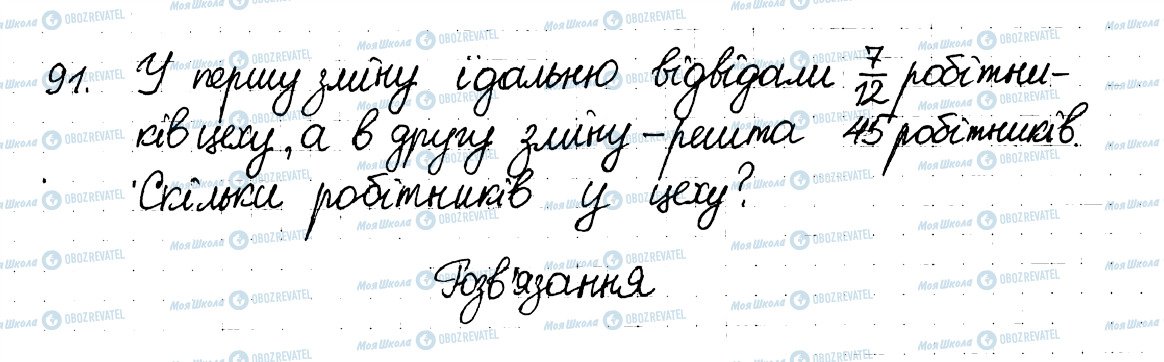 91. У першу зміну їдальню відвідали 7/12 робітни-
ків цеху, а в другу зміну - решта 45 робітників.
Скільки робітників у цеху?
Розв'язання